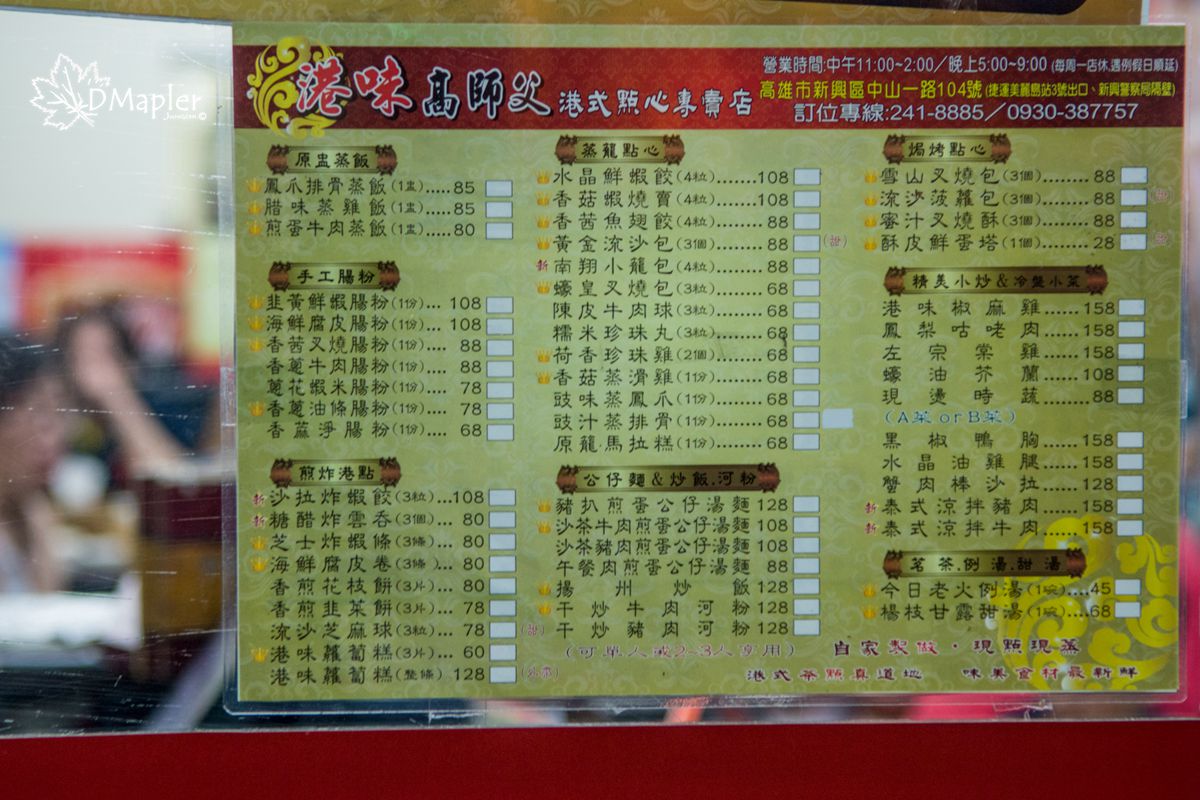 DMapler
港味 高師父 港式點心專賣店
營業時間:中午11:00~2:00／晚上5:00~9:00 (每周一店休,遇例假日順延)
高雄市新興區中山一路104號(捷運美麗島站3號出口、新興警察局隔壁)
訂位專線:241-8885／0930-387757
原盅蒸飯
鳳爪排骨蒸飯(1盅).....85
腊味蒸雞飯(1盅).....85
煎蛋牛肉蒸飯(1盅)....80
手工腸粉
韭黃鮮蝦腸粉(1份)... 108
海鮮腐皮腸粉(1份)... 108
香茜叉燒腸粉(1份).... 88
香蔥牛肉腸粉(1份).... 88
蔥花蝦米腸粉(1份).... 78
香蔥油條腸粉(1份).... 78
香蔴淨腸粉(1份).... 68
煎炸港點
新沙拉炸蝦餃(3粒)...108
新糖醋炸雲吞(3個)... 80
芝士炸蝦條(3條)... 80
海鮮腐皮卷(3條)... 80
香煎花枝餅(3片)... 80
香煎韭菜餅(3片)... 78
流沙芝麻球(3粒)... 78 (甜)
港味蘿蔔糕(3片)... 60
港味蘿蔔糕(整條) 128
蒸籠點心
水晶鮮蝦餃(4粒).......108
香菇蝦燒賣(4粒).......108
香茜魚翅餃(4粒)....... 88
黃金流沙包(3個)....... 88 (甜)
新南翔小籠包(4粒)....... 88
蠔皇叉燒包(3粒)....... 68
陳皮牛肉球(3粒)....... 68
糯米珍珠丸(3粒)....... 68
荷香珍珠雞(2個)....... 68
香菇蒸滑雞(1份)....... 68
豉味蒸鳳爪(1份)....... 68
豉汁蒸排骨(1份)....... 68
原籠馬拉糕(1份)....... 68
公仔麵&炒飯.河粉
豬扒煎蛋公仔湯麵 128
沙茶牛肉煎蛋公仔湯麵 108
沙茶豬肉煎蛋公仔湯麵 108
午餐肉煎蛋公仔湯麵 88
揚州炒飯 128
干炒牛肉河粉 128
干炒豬肉河粉 128
(可單人或2-3人享用)
焗烤點心
雪山叉燒包(3個)........ 88
流沙菠蘿包(3個)........ 88
蜜汁叉燒酥(3個)........ 88
酥皮鮮蛋塔(1個)........ 28
精美小炒&冷盤小菜
港味椒麻雞......158
鳳梨咕咾肉......158
左宗棠雞......158
蠔油芥蘭......108
現燙時蔬...... 88
(A菜 or B菜)
黑椒鴨胸......158
水晶油雞腿......158
蟹肉棒沙拉......128
新泰式涼拌豬肉......158
新泰式涼拌牛肉......158
茗茶.例湯.甜湯
今日老火例湯(1碗)....45
楊枝甘露甜湯(1碗)....68
自家製做・現點現蒸
港式茶點真道地 味美食材最新鮮